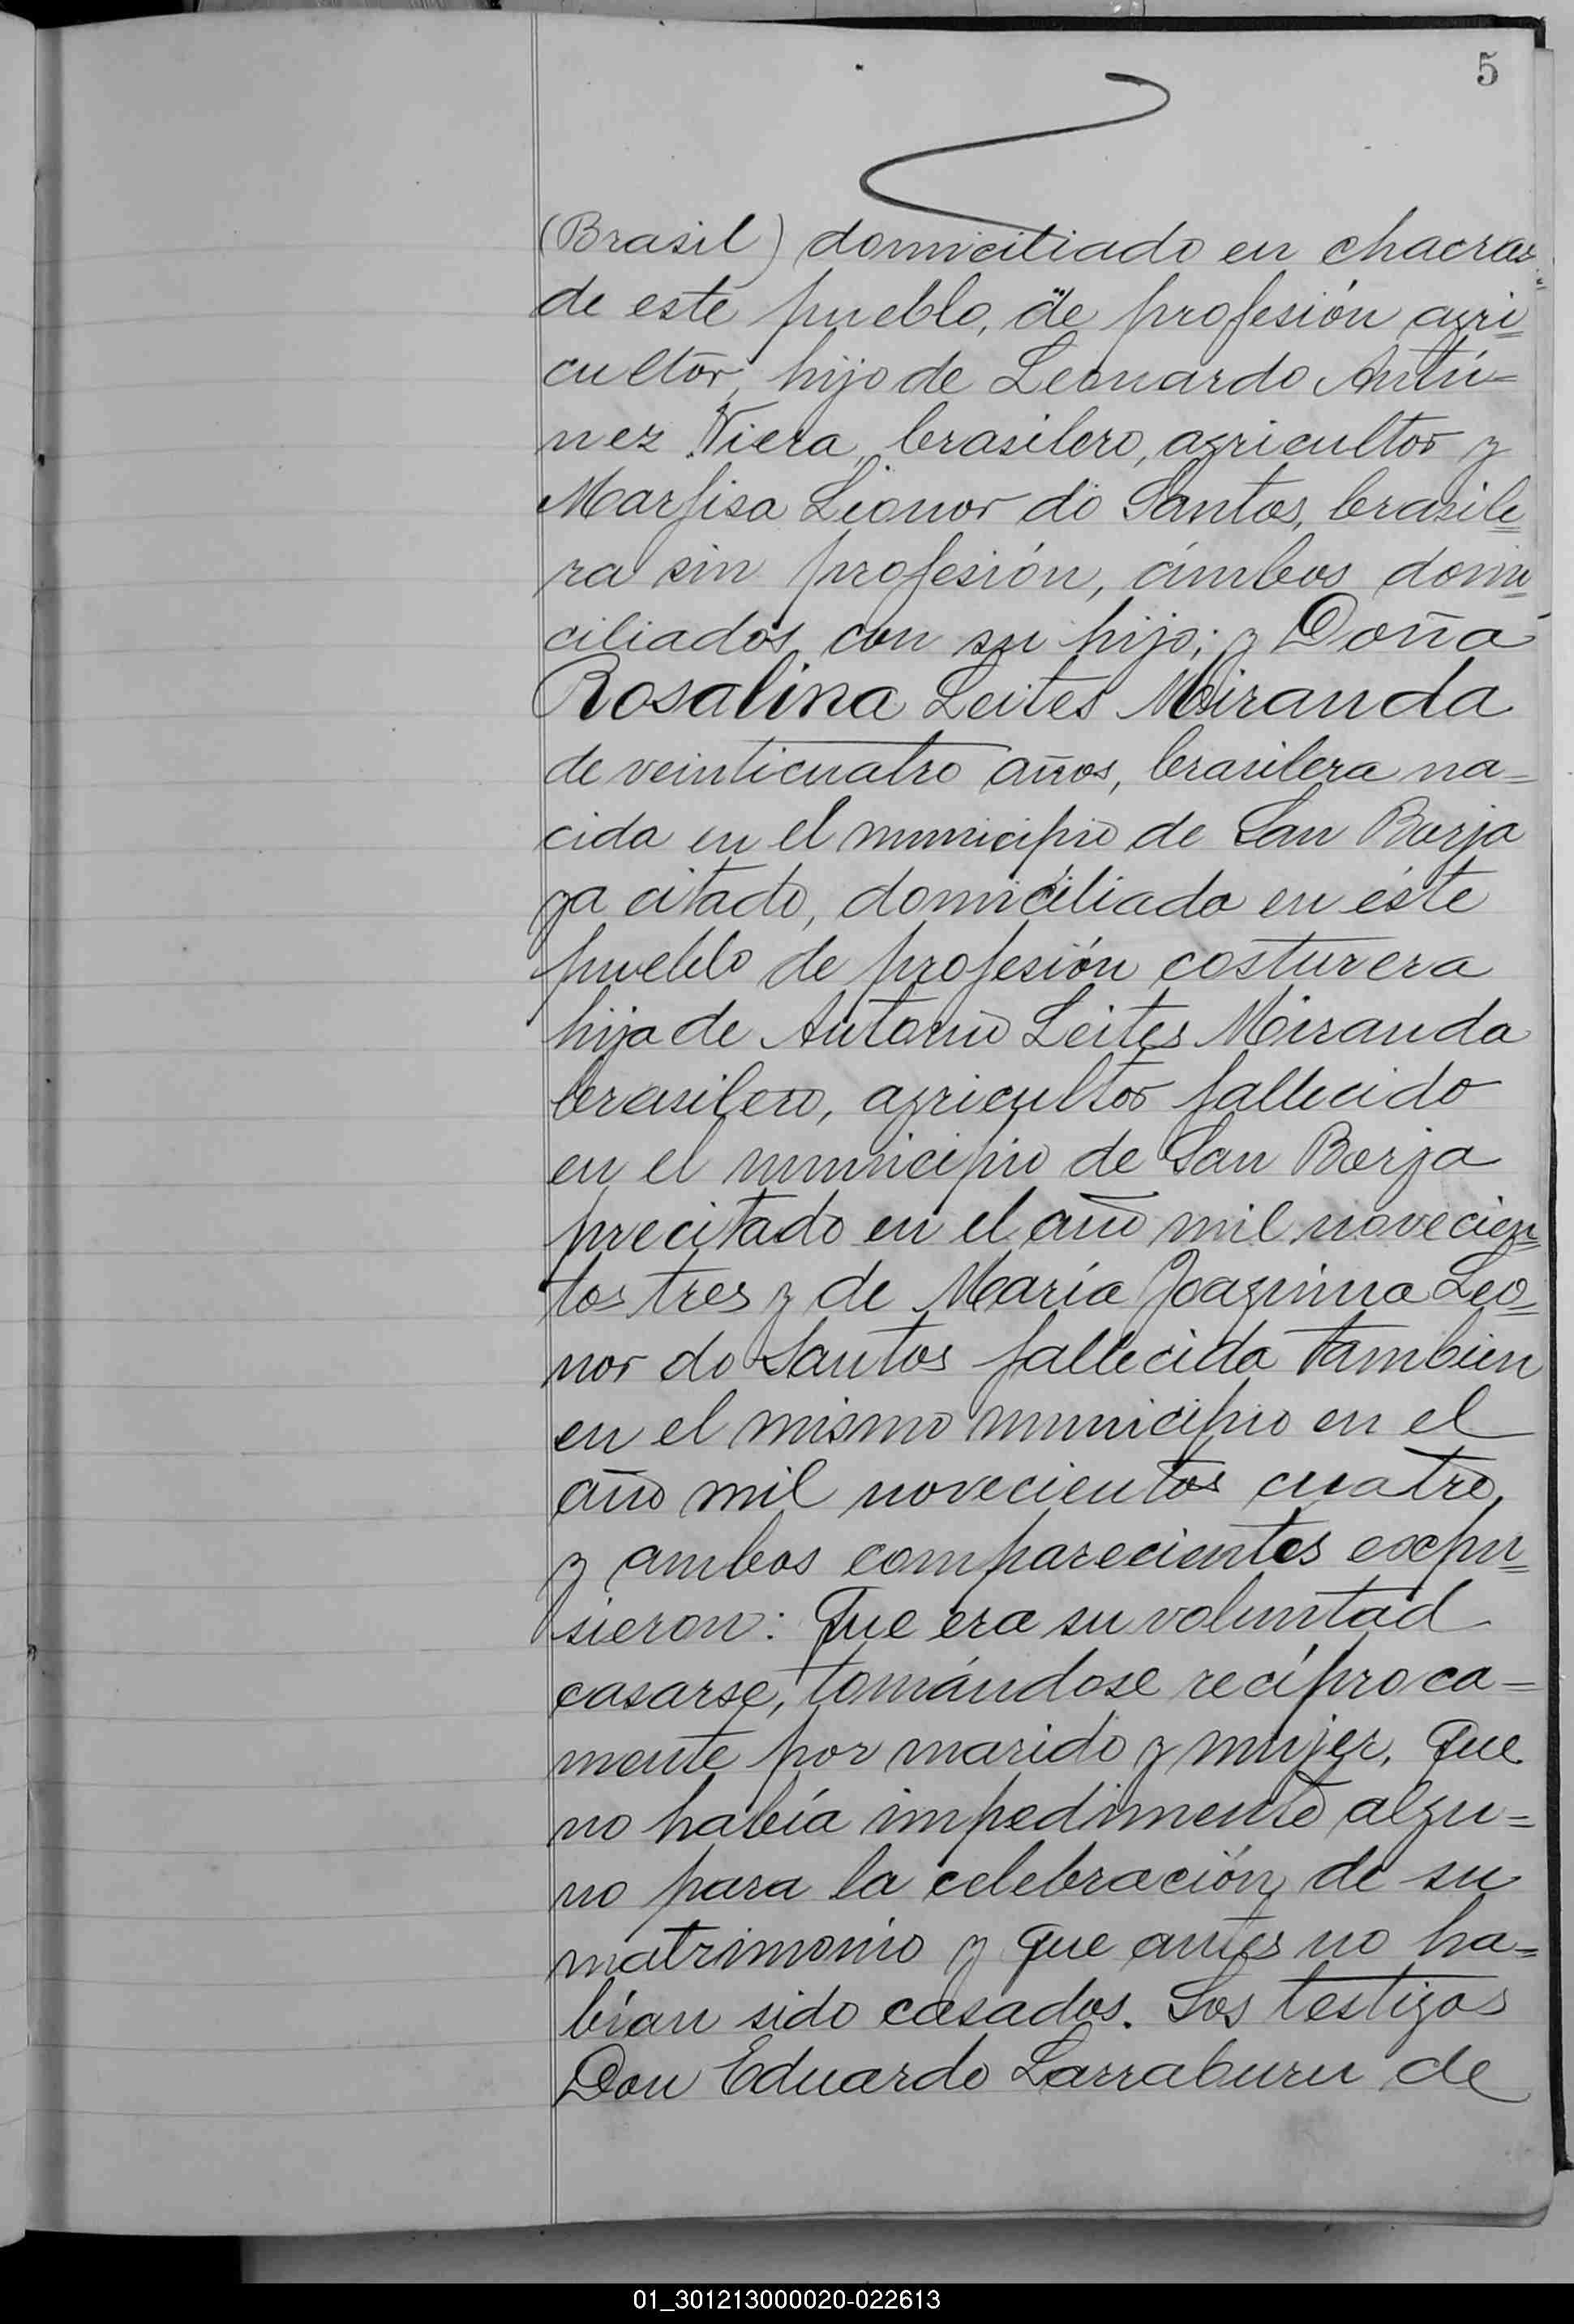 5
(Brasil) domiciliado en chacras
de este pueblo, de profesión agri=
cultor, hijo de Leonardo Antú=
nez Viera, brasilero, agricultor y
Marfisa Lionor do Santos, brasile=
ra sin profesión, ámbos domi=
ciliados con su hijo; y Doña
Rosalina Leites Miranda
de veinticuatro años, brasilera na=
cida en el municipio de San Borja
ya citado, domiciliada en éste
pueblo de profesión costurera
hija de Antonio Leites Miranda
brasilero, agricultor fallecido
en el municipio de San Borja
precitado en el año mil novecien=
tos tres y de María Joaquina Leo=
nor do Santos fallecida tambien
en el mismo municipio en el
año mil novecientos cuatro,
y ambos comparecientes expu=
sieron: Que era su voluntad
casarse, tomándose recíproca=
mente por marido y mujer, que
no había impedimento algu=
no para la celebración de su
matrimonio y que antes no ha=
bían sido casados. Los testigos
Don Eduardo Larraburu de
01_301213000020-022613